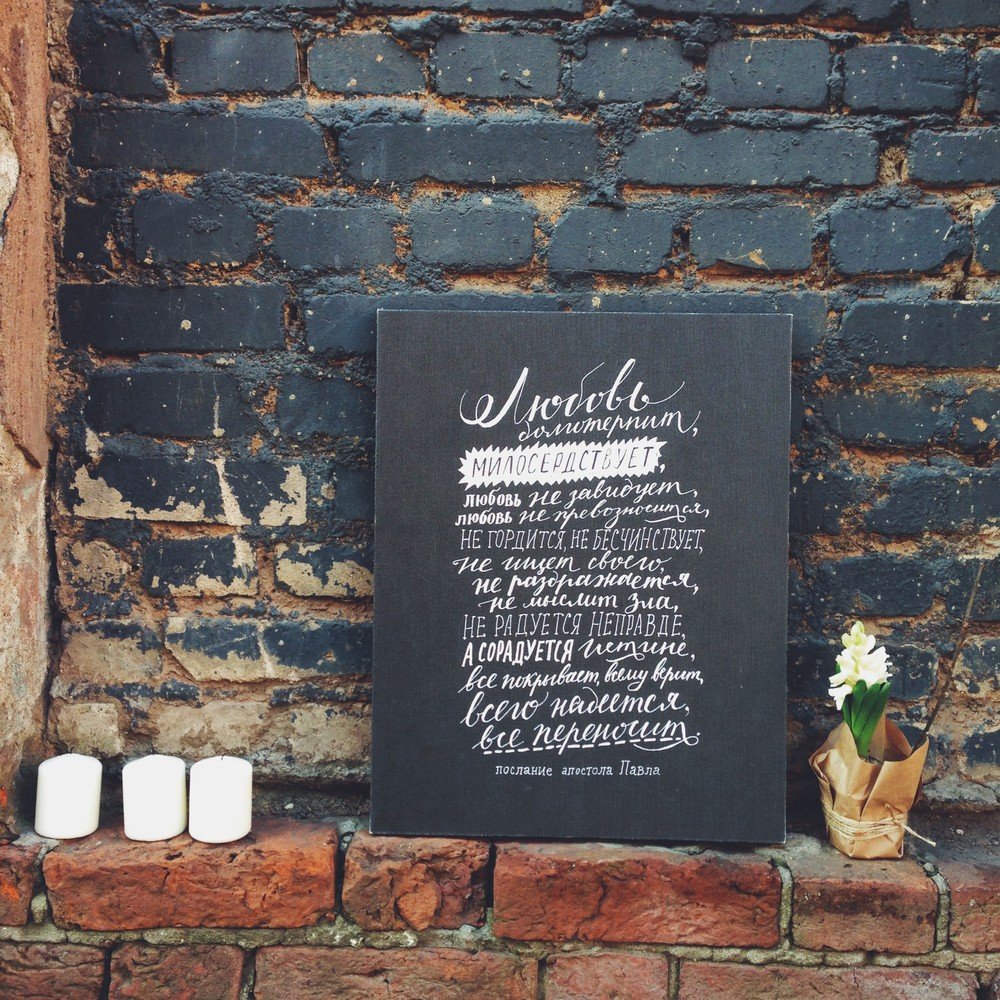 Любовь
долготерпит,
МИЛОСЕРДСТВУЕТ,
ЛЮБОВЬ не завидует,
ЛЮБОВЬ не превозносится,
НЕ ГОРДИТСЯ, НЕ БЕСЧИНСТВУЕТ,
не ищет своего,
не раздражается,
не мыслит зла,
НЕ РАДУЕТСЯ НЕПРАВДЕ,
А СОРАДУЕТСЯ истине,
все покрывает, всему верит,
всего надеется,
все переносит.
послание апостола Павла